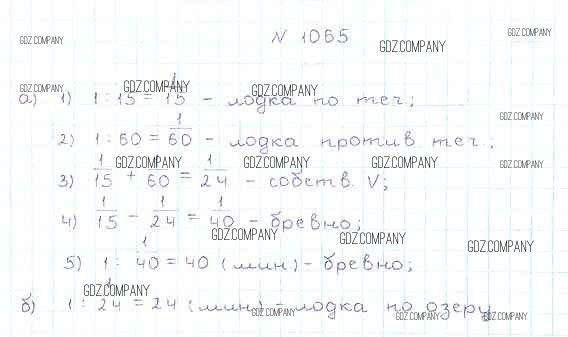 N 1065
GDZ.COMPANY GDZ.COMPANY GDZ.COMPANY
GDZ.COMPANY GDZ.COMPANY GDZ.COMPANY
а) 1) 1 : 15 = 1/15 - лодка по теч;
GDZ.COMPANY
2) 1 : 60 = 1/60 - лодка против теч.;
GDZ.COMPANY GDZ.COMPANY GDZ.COMPANY GDZ.COMPANY
3) 1/15 + 1/60 = 1/24 - собств. V;
4) 1/15 - 1/24 = 1/40 - бревно;
GDZ.COMPANY GDZ.COMPANY GDZ.COMPANY
5) 1 : 1/40 = 40 (мин) - бревно;
GDZ.COMPANY
б) 1 : 1/24 = 24 (мин) - лодка по озеру
GDZ.COMPANY GDZ.COMPANY GDZ.COMPANY